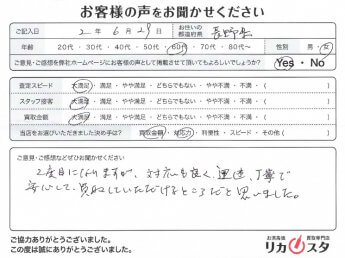 お客様の声をお聞かせください
ご記入日 2年 6月 29日 お住いの都道府県 長野県
年齢 20代・30代・40代・50代・60代・70代・80代〜 性別 男・女
ご意見・ご感想を弊社ホームページにお客様の声として掲載させて頂いてもよろしいでしょうか? Yes・No
査定スピード 大満足・満足・やや満足・どちらでもない・やや不満・不満( )
スタッフ接客 大満足・満足・やや満足・どちらでもない・やや不満・不満( )
買取金額 大満足・満足・やや満足・どちらでもない・やや不満・不満( )
当店をお選びいただきました決め手は? 買取金額・対応力・利便性・スピード・その他( )
ご意見・ご感想などぜひお聞かせください
2度目になりますが、対応も良く、迅速、丁寧で
安心して、買取していただけるところだと思いました。
ご協力ありがとうございました。
この度は誠にありがとうございました。
お酒高価買取専門店
リカスタ